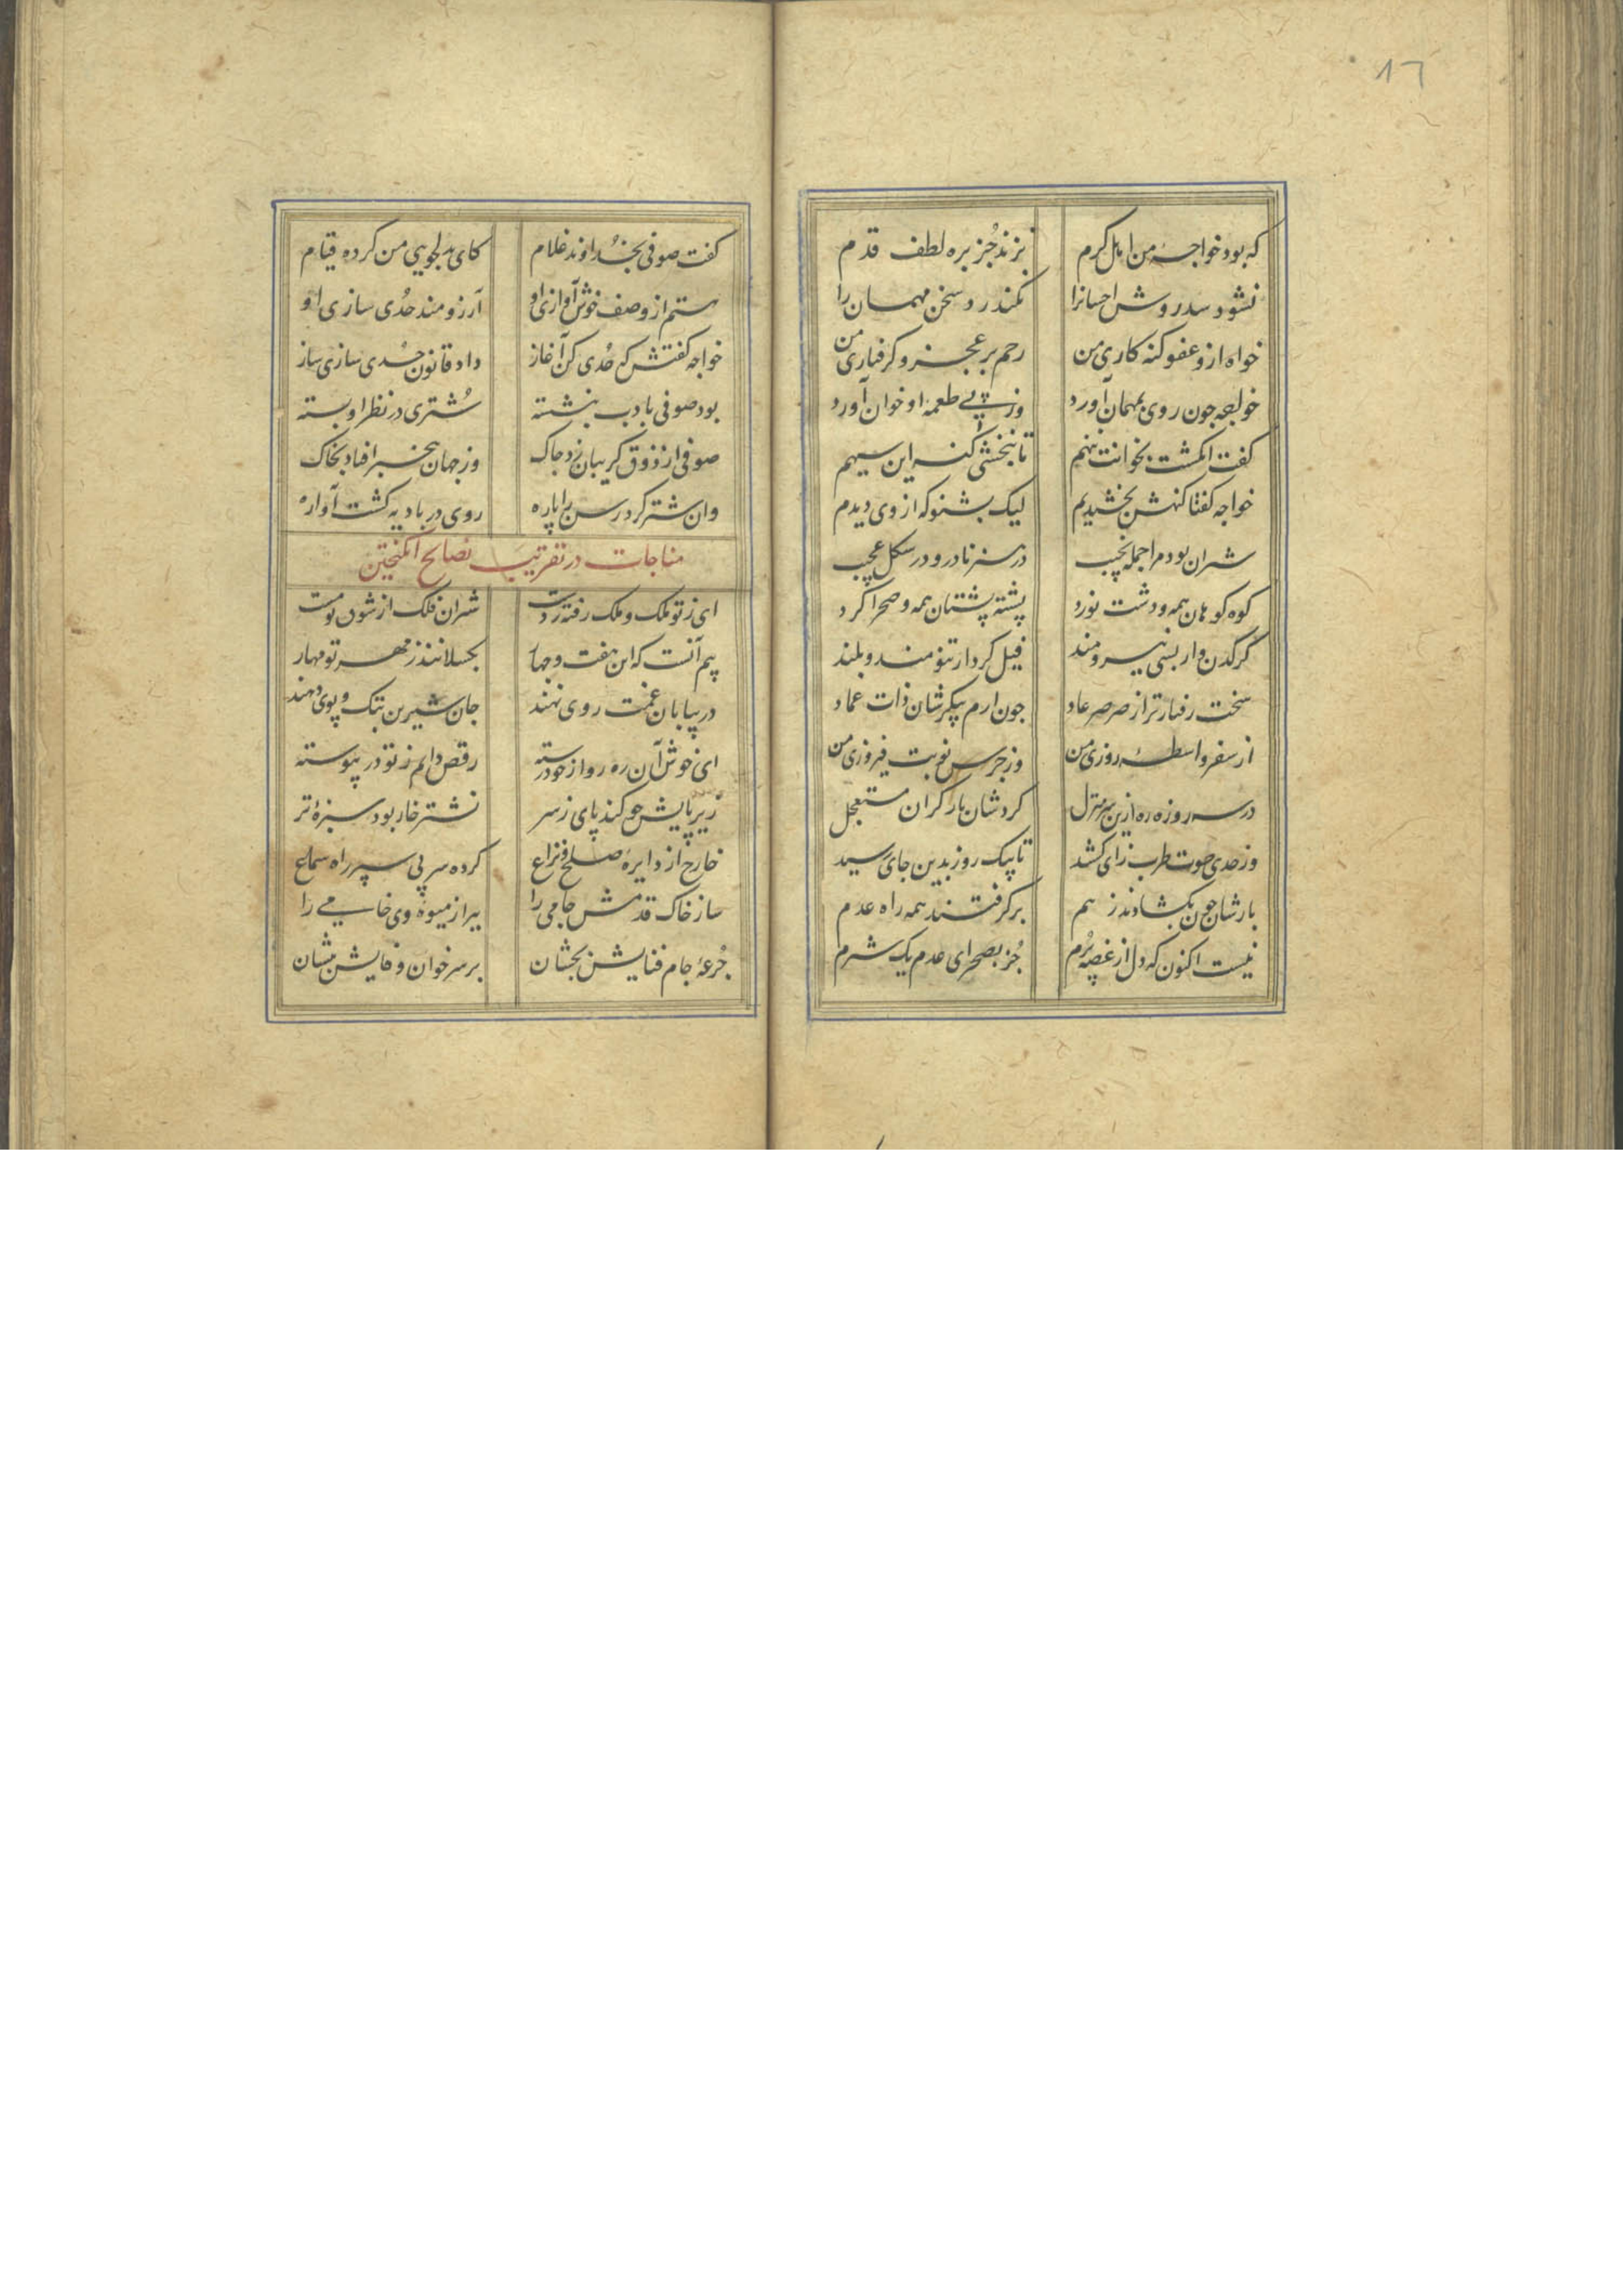 ١٦
که بود خواجهٔ من اهل کرم بزند جُز بره لطف قدم
نشود سد روش احسانرا نکند رد سخن مهمان را
خواه ازو عفو کنه کاری من رحم بر عجز و کرفتاری من
خواجه جون روی بمهمان آورد وز پی طعمهٔ او خوان آورد
کفت انکشت بخوانت ننهم تا نبخشی کنه این سیهم
خواجه کفتا کنهش بخشیدم لیک بشنو که از وی دیدم
شتران بود مرا جمله نجیب در هنر نادر و در شکل عجیب
کوه کوهان همه و دشت نورد پشته پشتان همه و صحرا کرد
کرکدن وار بسی نیرومند فیل کردار تنومند و بلند
سخت رفتارتر از صرصر عاد جون ارم پیکرشان ذات عماد
از سفر واسطهٔ روزی من وز جرس نوبت فیروزی من
در سه روزه ره ازین سر منزل کردشان بار کران مستعجل
وز حدی صوت طرب زای کشید تا بیک روز بدین جای رسید
بارشان جون بکشادند ز هم برکرفتند همه راه عدم
نیست اکنون که دل از غصه پُرم جُز بصحرای عدم یک شترم
کفت صوفی بخُداوند غلام کای بدلجویی من کرده قیام
هستم از وصف خوش آوازی او آرزومند حُدی سازی او
خواجه کفتش که حُدی کن آغاز داد قانون حُدی سازی ساز
بود صوفی بادب بنشسته شُتری در نظر او بسته
صوفی از ذوق کریبان زد جاک وز جهان بیخبر افتاد بخاک
وان شتر کرد رسن را پاره روی در بادیه کشت آواره
مناجات در تقریب نصایح انکیختن
ای ز تو ملک و ملک رفته ز دست شتران فلک از شوق تو مست
بیم آنست که این هفت و جهار بکسلانند ز مهر تو مهار
در بیابان غمت روی نهند جان شیرین بتک و پوی دهند
ای خوش آن ره رو از خود رسته رقص دایم ز تو در پیوسته
زیر پایش جو کند پای ز سر نشتر خار بود سبزهٔ تر
خارج از دایرهٔ صلح و نزاع کرده سر پی سپر راه سماع
ساز خاک قدمش جامی را ببر از میوهٔ وی خامی را
جُرعهٔ جام فنایش بجشان بر سر خوان وفایش بنشان